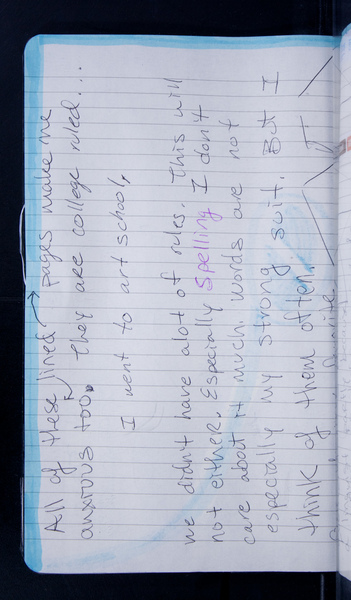 All of these lined pages make me
anxious too. They are college ruled...
I went to art school,
we didn't have alot of rules. This will
not either. Especially spelling I don't
care about it much. words are not
especially my strong suit. But I
think of them often.